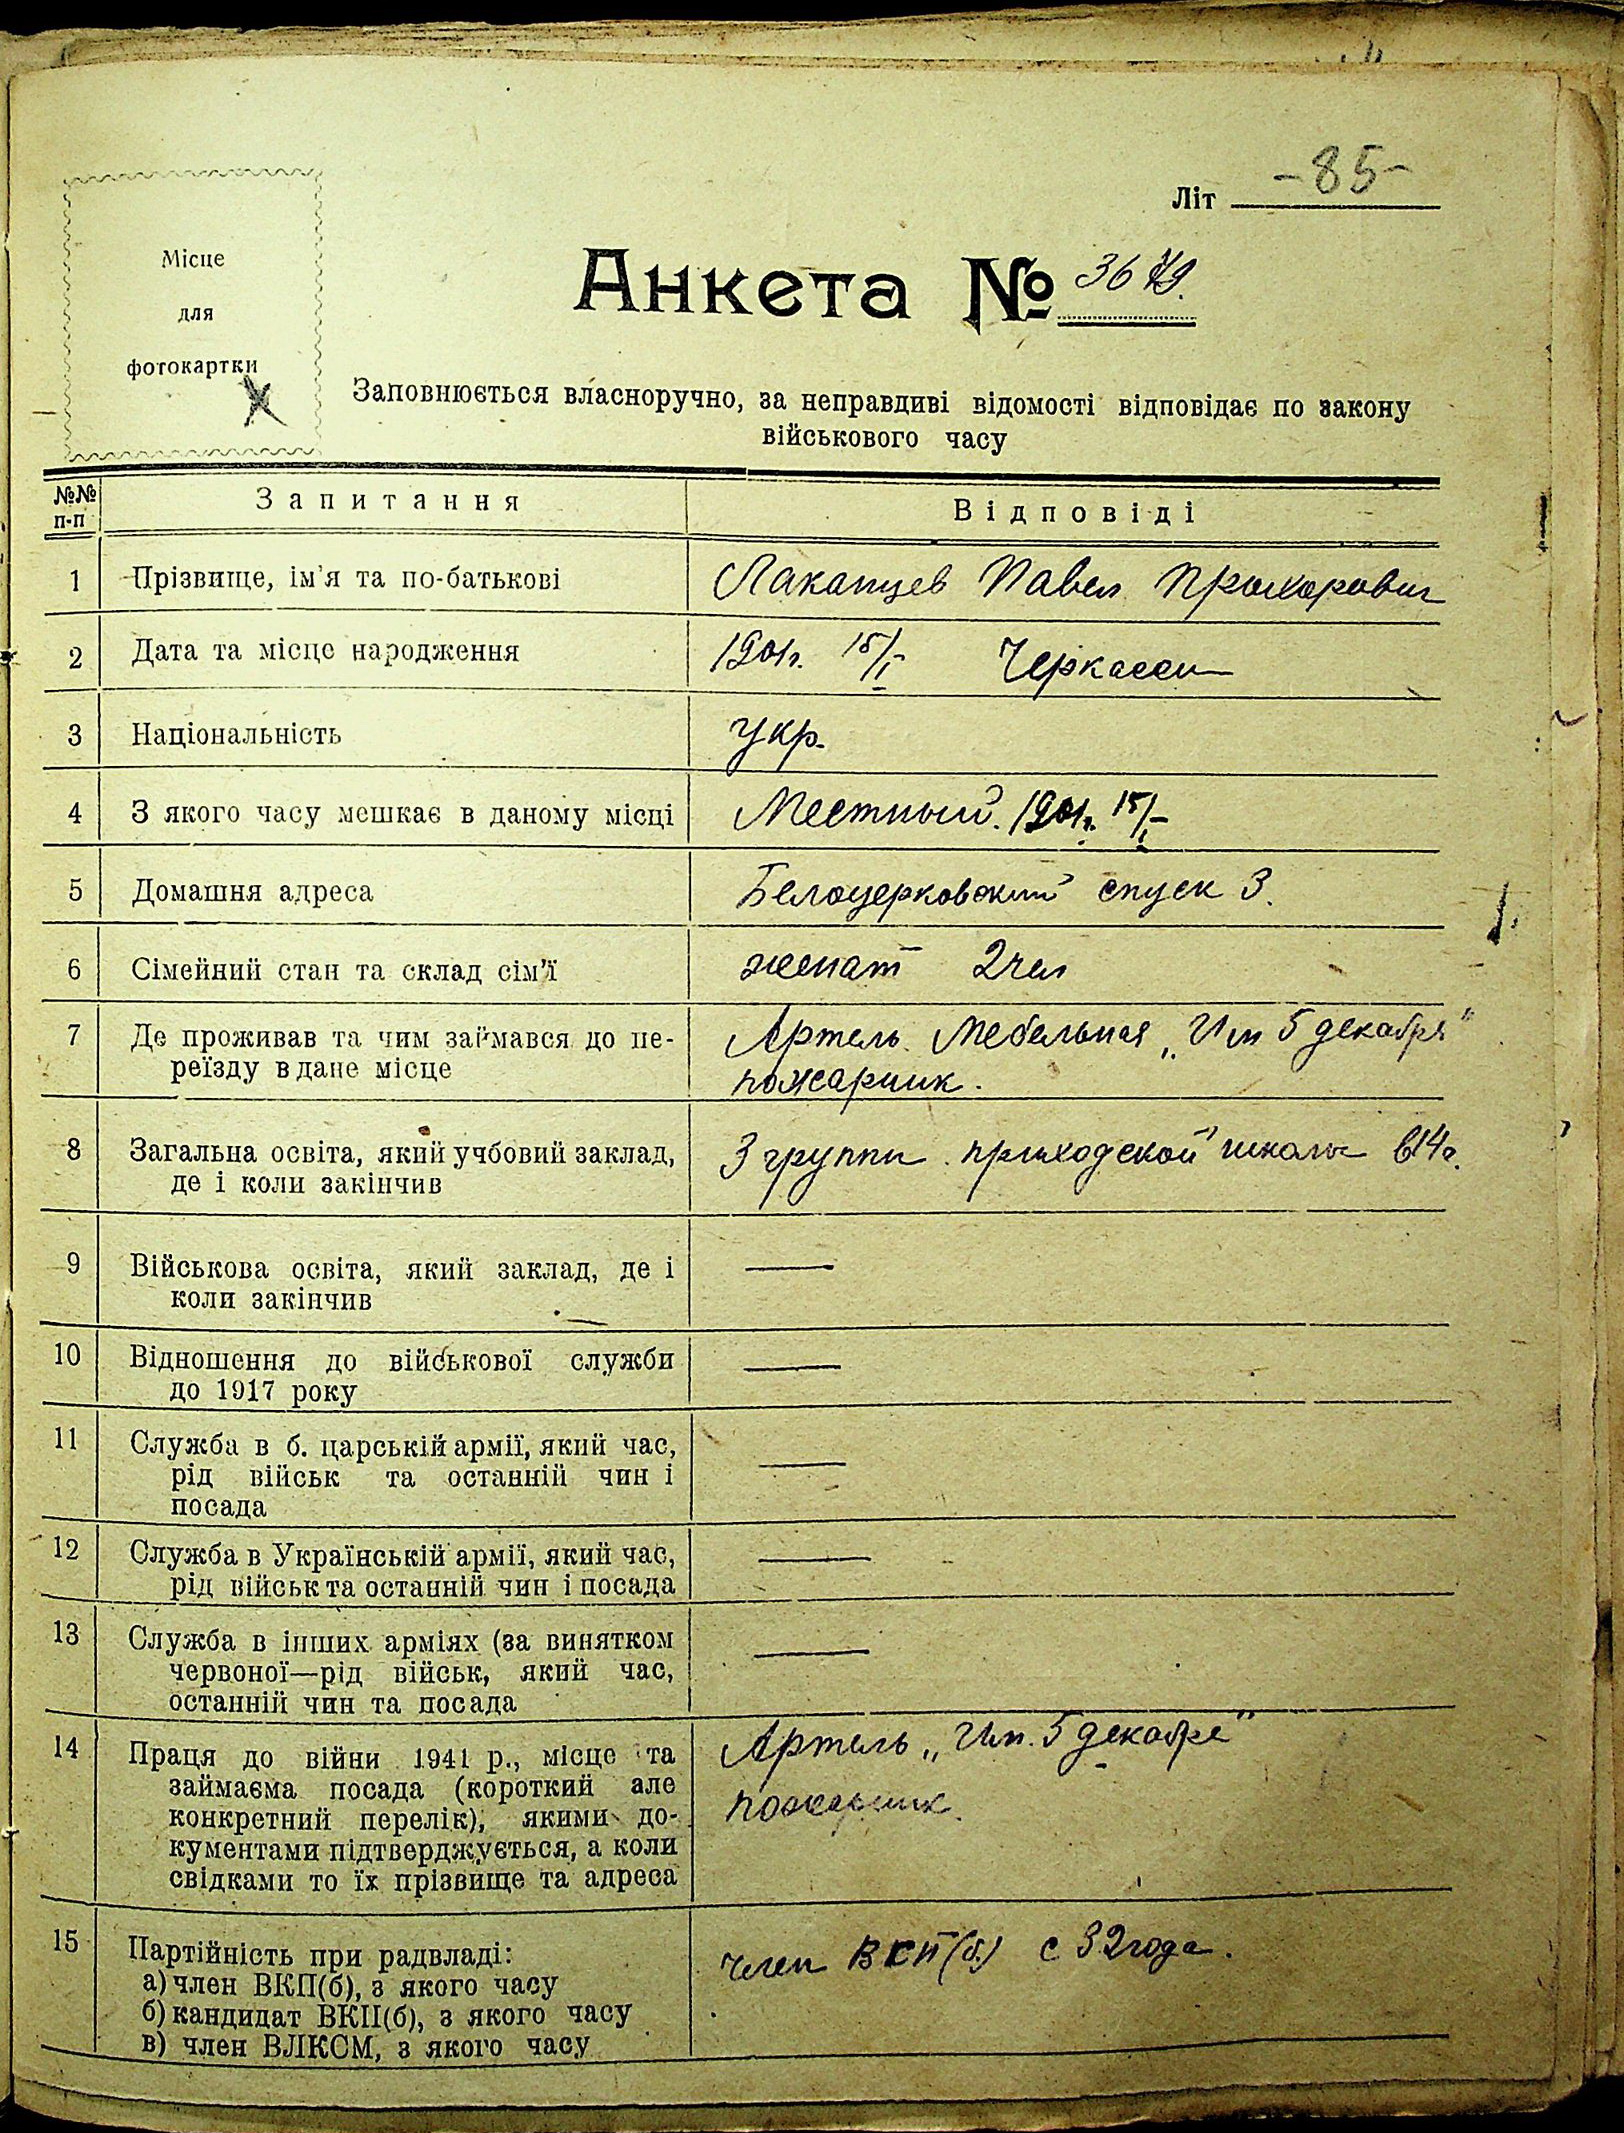 Літ -85-
Місце
для
фотокартки
Анкета № 3679.
Заповнюється власноручно, за неправдиві відомості відповідає по закону
військового часу
№№ п-п Запитання Відповіді
1 Прізвище, ім'я та по-батькові Лакапцев Павел Прохорович
2 Дата та місце народження 1901г. 15/I Черкассы
3 Національність Укр.
4 З якого часу мешкає в даному місці Местный. 1901г. 15/I
5 Домашня адреса Белоцерковский спуск 3.
6 Сімейний стан та склад сім'ї женат 2 чел
7 Де проживав та чим займався до пе- Артель Мебельная „Им 5 декабря"
реїзду в дане місце пожарник.
8 Загальна освіта, який учбовий заклад, 3 группы приходской школы в 14г.
де і коли закінчив
9 Військова освіта, який заклад, де і —
коли закінчив
10 Відношення до військової служби —
до 1917 року
11 Служба в б. царській армії, який час, —
рід військ та останній чин і
посада
12 Служба в Українській армії, який час, —
рід військ та останній чин і посада
13 Служба в інших арміях (за винятком —
червоної—рід військ, який час,
останній чин та посада
14 Праця до війни 1941 р., місце та Артель „Им. 5 декабре"
займаєма посада (короткий але пожарник.
конкретний перелік), якими до-
кументами підтверджується, а коли
свідками то їх прізвище та адреса
15 Партійність при радвладі: член ВКП(б) с 32 года.
а) член ВКП(б), з якого часу
б) кандидат ВКП(б), з якого часу
в) член ВЛКСМ, з якого часу